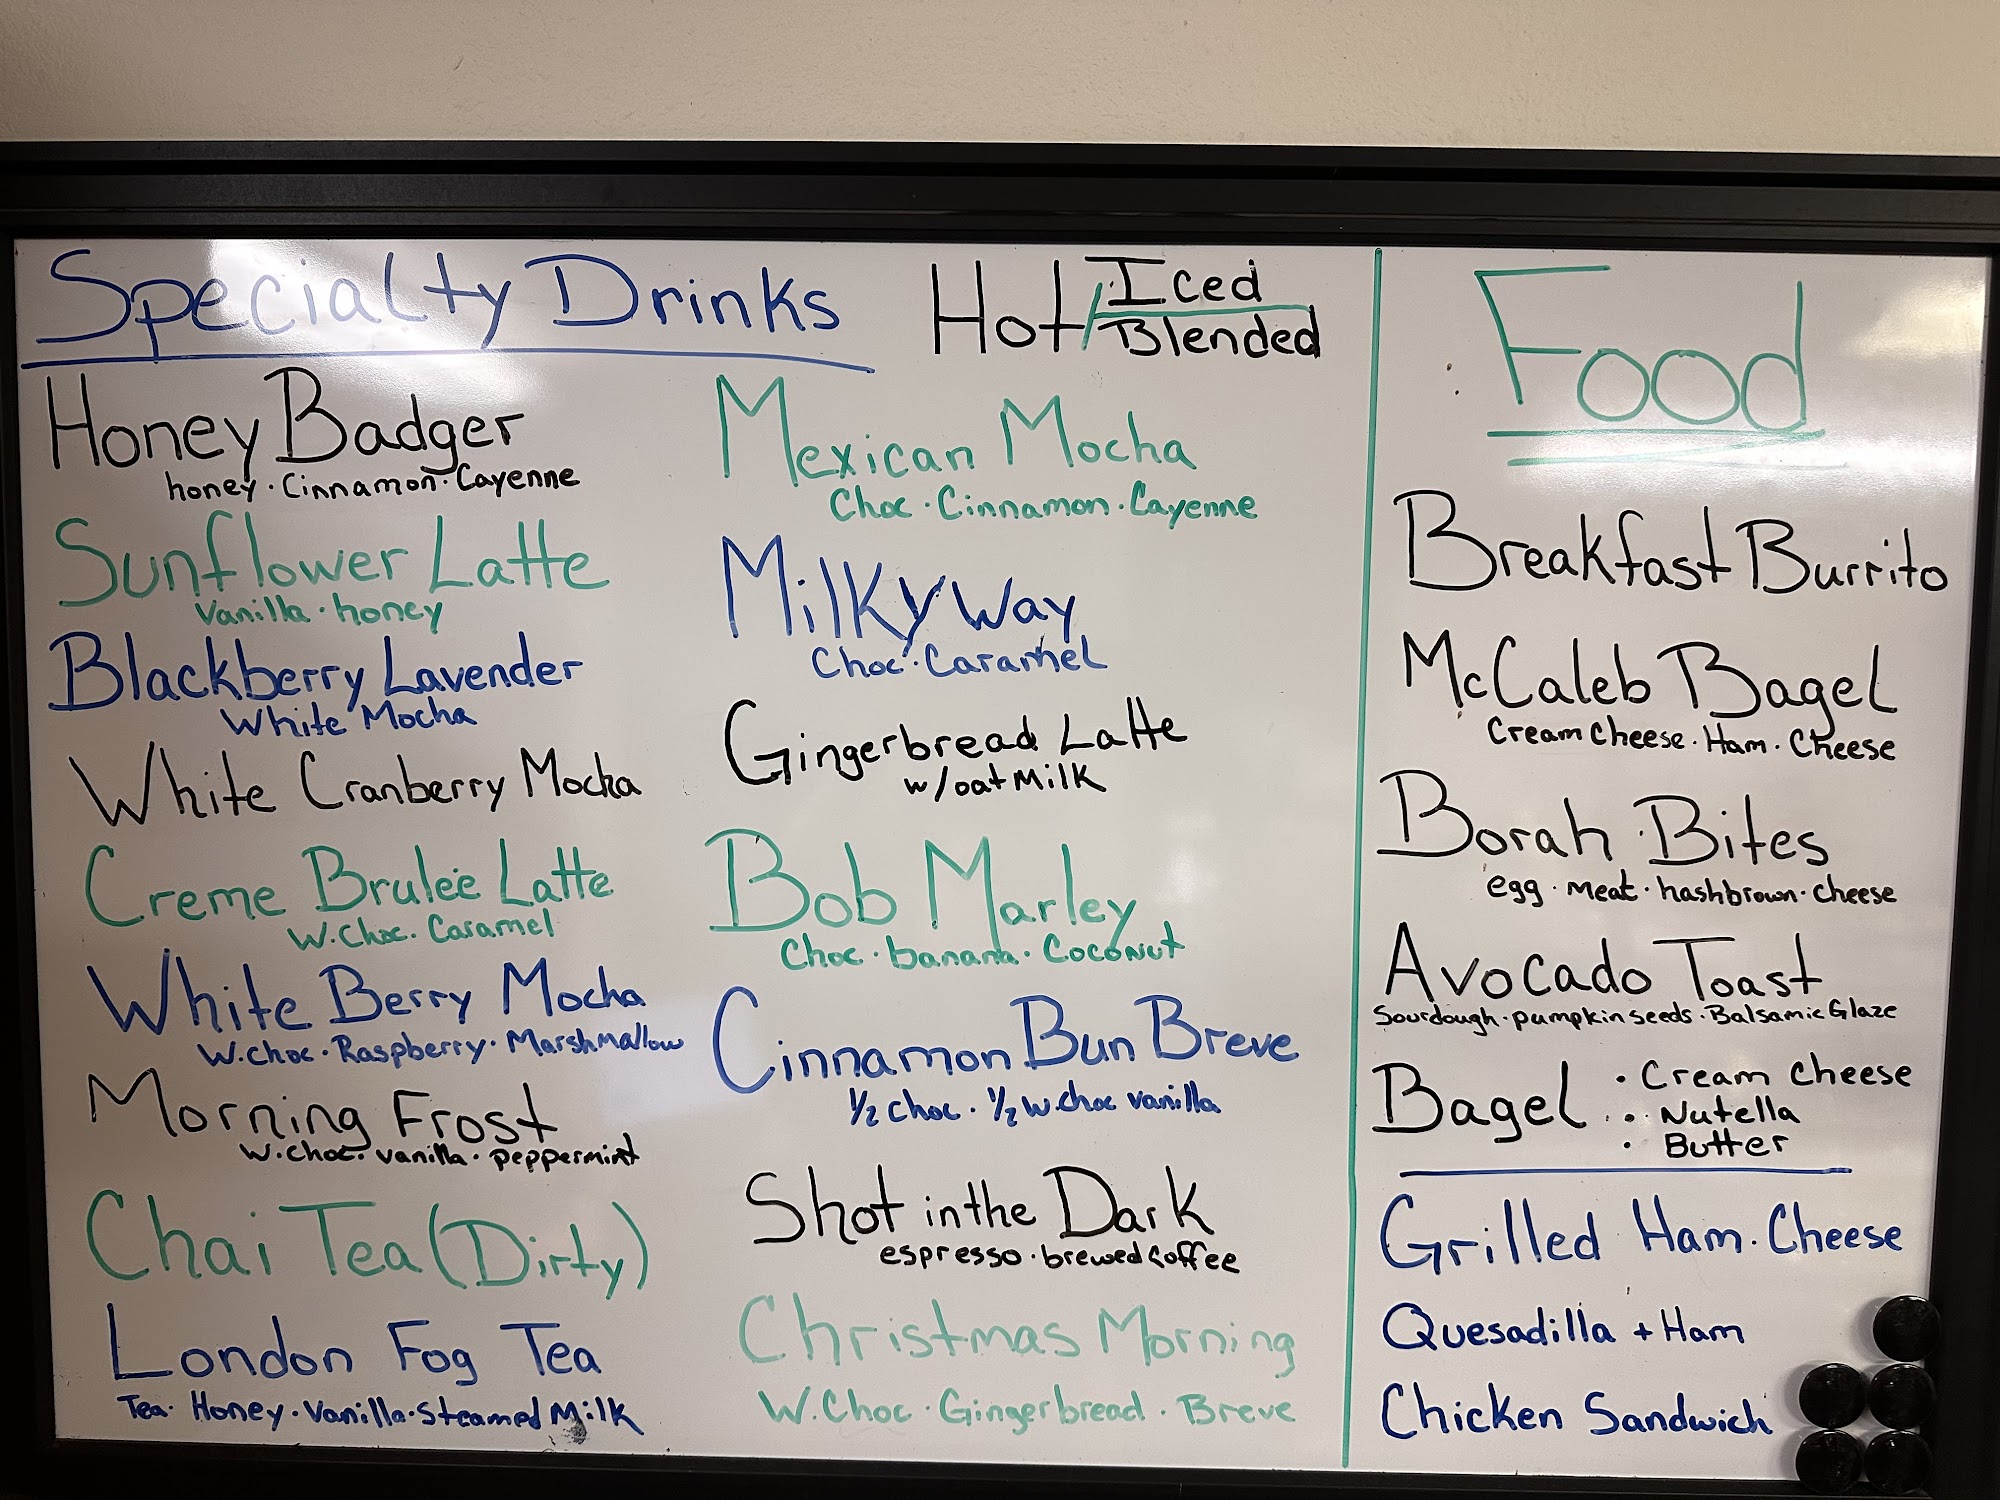 Specialty Drinks
Hot/Iced
Blended
Honey Badger
honey · Cinnamon · Cayenne
Sunflower Latte
Vanilla · honey
Blackberry Lavender
White Mocha
White Cranberry Mocha
Creme Brulee Latte
W.Choc. Caramel
White Berry Mocha
W.choc · Raspberry · Marshmallow
Morning Frost
W.choc. vanilla · peppermint
Chai Tea (Dirty)
London Fog Tea
Tea · Honey · Vanilla · Steamed Milk
Mexican Mocha
Choc · Cinnamon · Cayenne
Milky Way
Choc · Caramel
Gingerbread Latte
w/oat Milk
Bob Marley
Choc · banana · Coconut
Cinnamon Bun Breve
1/2 choc · 1/2 w.choc vanilla
Shot in the Dark
espresso · brewed coffee
Christmas Morning
W.Choc · Gingerbread · Breve
Food
Breakfast Burrito
McCaleb Bagel
Cream Cheese · Ham · Cheese
Borah Bites
egg · meat · hashbrown · cheese
Avocado Toast
Sourdough · pumpkin seeds · Balsamic Glaze
Bagel · Cream Cheese
· Nutella
· Butter
Grilled Ham · Cheese
Quesadilla + Ham
Chicken Sandwich